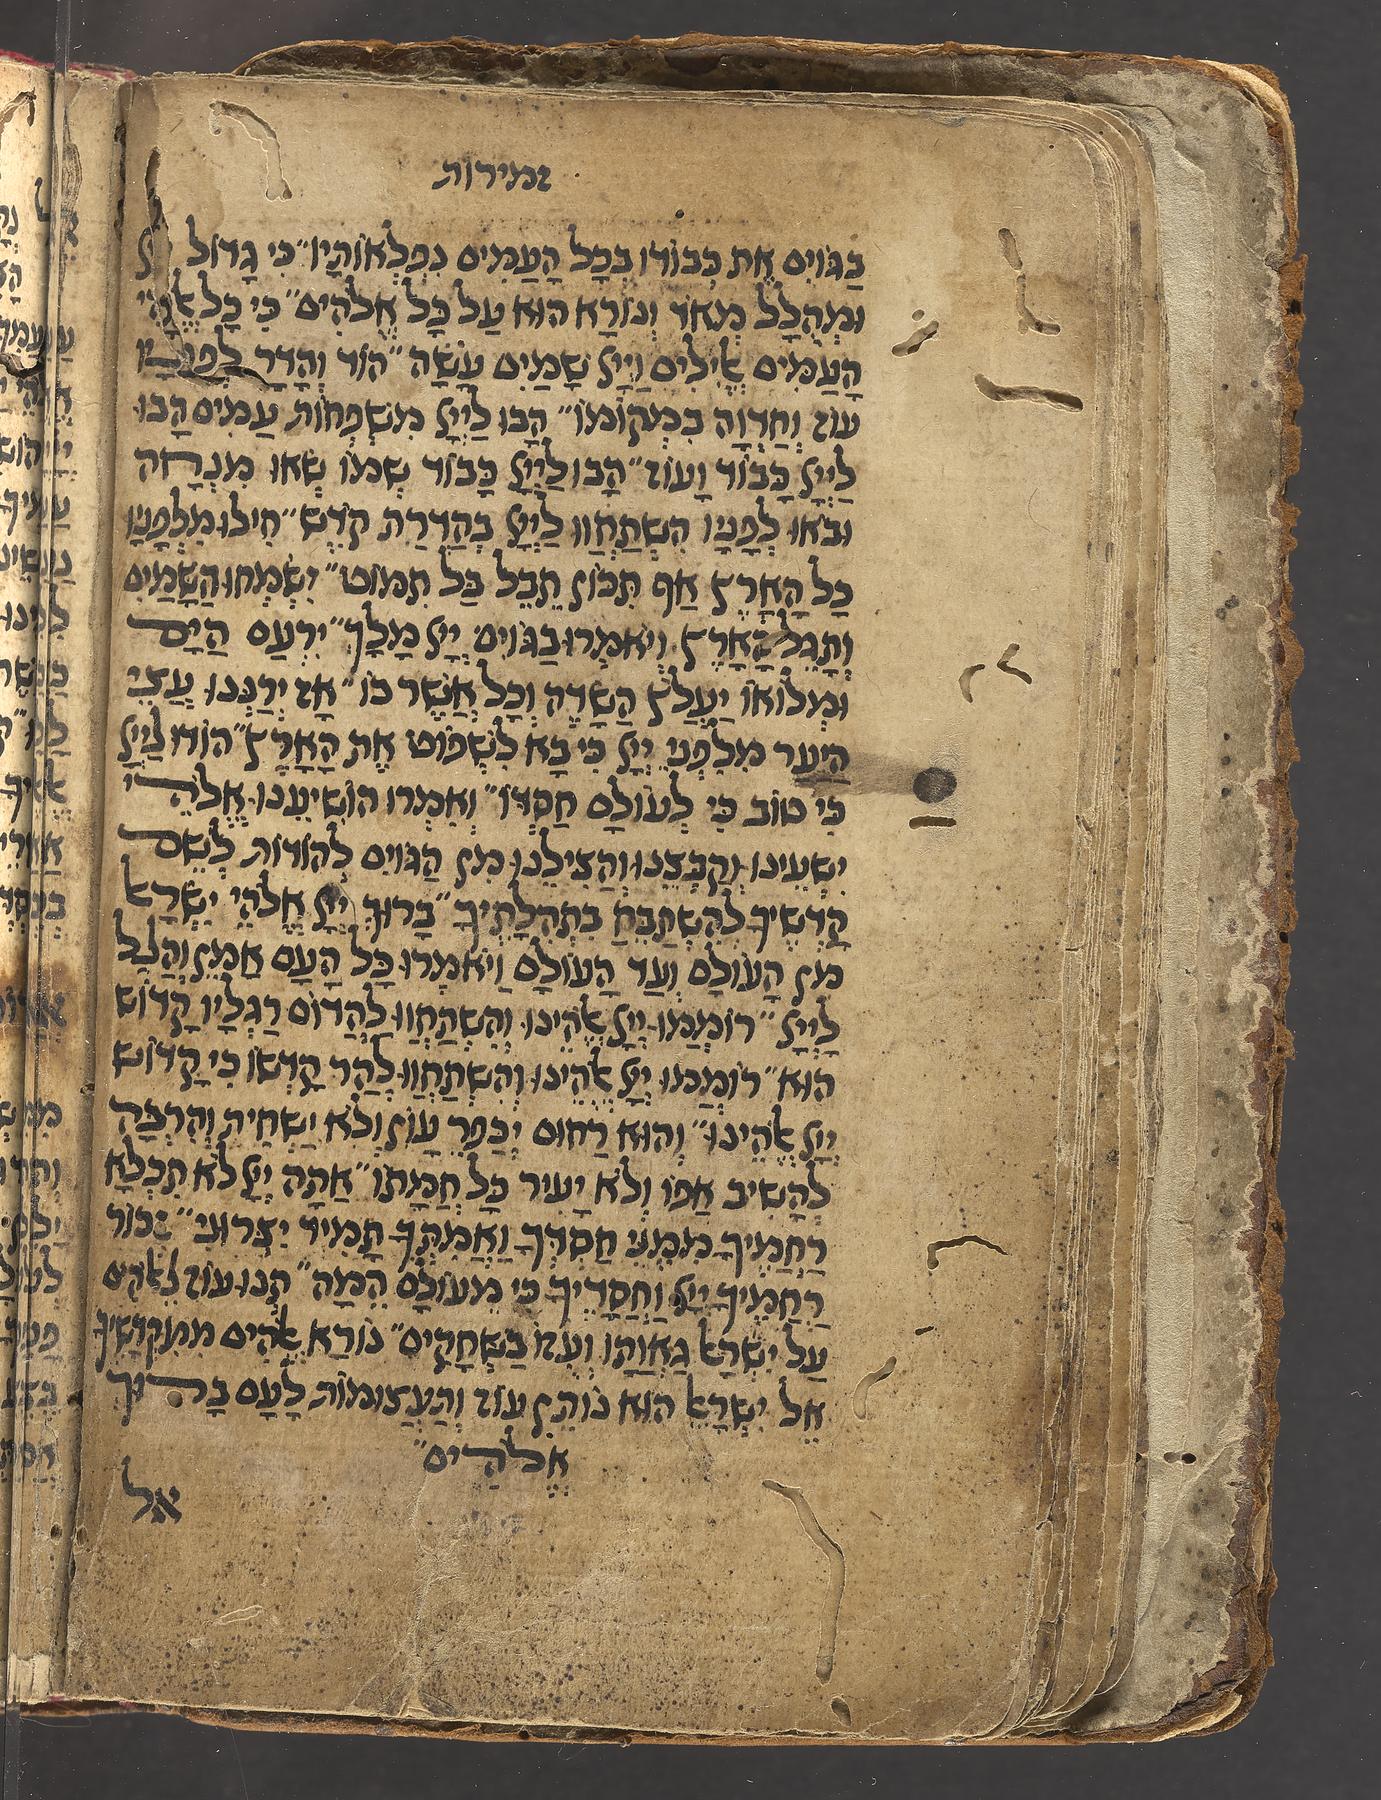 זמירות
בַּגּוֹיִם אֶת כְּבוֹדוֹ בְּכָל הָעַמִּים נִפְלְאוֹתָיו״ כִּי גָדוֹל
וּמְהֻלָּל מְאֹד וְנוֹרָא הוּא עַל כָּל אֱלֹהִים״ כִּי כָּל
הָעַמִּים אֱלִילִים וַייָ שָׁמַיִם עָשָׂה״ הוֹד וְהָדָר לְפָנָיו
עוֹז וְחֶדְוָה בִּמְקוֹמוֹ״ הָבוּ לַייָ מִשְׁפְּחוֹת עַמִּים הָבוּ
לַייָ כָּבוֹד וָעוֹז״ הָבוּ לַייָ כְּבוֹד שְׁמוֹ שְׂאוּ מִנְחָה
וּבֹאוּ לְפָנָיו הִשְׁתַּחֲווּ לַייָ בְּהַדְרַת קֹדֶשׁ״ חִילוּ מִלְּפָנָיו
כָּל הָאָרֶץ אַף תִּכּוֹן תֵּבֵל בַּל תִּמּוֹט״ יִשְׂמְחוּ הַשָּׁמַיִם
וְתָגֵל הָאָרֶץ וְיֹאמְרוּ בַגּוֹיִם יְיָ מָלָךְ״ יִרְעַם הַיָּם
וּמְלוֹאוֹ יַעֲלֹץ הַשָּׂדֶה וְכָל אֲשֶׁר בּוֹ״ אָז יְרַנְּנוּ עֲצֵי
הַיַּעַר מִלִּפְנֵי יְיָ כִּי בָא לִשְׁפּוֹט אֶת הָאָרֶץ״ הוֹדוּ לַייָ
כִּי טוֹב כִּי לְעוֹלָם חַסְדּוֹ״ וְאִמְרוּ הוֹשִׁיעֵנוּ אֱלֹהֵי
יִשְׁעֵינוּ וְקַבְּצֵנוּ וְהַצִּילֵנוּ מִן הַגּוֹיִם לְהוֹדוֹת לְשֵׁם
קָדְשֶׁיךָ לְהִשְׁתַּבֵּחַ בִּתְהִלָּתֶיךָ״ בָּרוּךְ יְיָ אֱלֹהֵי יִשְׂרָאֵל
מִן הָעוֹלָם וְעַד הָעוֹלָם וַיֹּאמְרוּ כָּל הָעָם אָמֵן וְהַלֵּל
לַייָ״ רוֹמְמוּ יְיָ אֱהֵינוּ וְהִשְׁתַּחֲווּ לַהֲדוֹם רַגְלָיו קָדוֹשׁ
הוּא״ רוֹמְמוּ יְיָ אֱהֵינוּ וְהִשְׁתַּחֲווּ לְהַר קָדְשׁוֹ כִּי קָדוֹשׁ
יְיָ אֱהֵינוּ״ וְהוּא רַחוּם יְכַפֵּר עָוֹן וְלֹא יַשְׁחִית וְהִרְבָּה
לְהָשִׁיב אַפּוֹ וְלֹא יָעִיר כָּל חֲמָתוֹ״ אַתָּה יְיָ לֹא תִכְלָא
רַחֲמֶיךָ מִמֶּנִּי חַסְדְּךָ וַאֲמִתְּךָ תָּמִיד יִצְּרוּנִי״ זְכוֹר
רַחֲמֶיךָ יְיָ וַחֲסָדֶיךָ כִּי מֵעוֹלָם הֵמָּה״ תְּנוּ עוֹז לֵאהִים
עַל יִשְׂרָאֵל גַּאֲוָתוֹ וְעֻזּוֹ בַּשְּׁחָקִים״ נוֹרָא אֱהִים מִמִּקְדָּשֶׁיךָ
אֵל יִשְׂרָאֵל הוּא נוֹתֵן עוֹז וְתַעֲצוּמוֹת לָעָם בָּרוּךְ
אֱלֹהִים״
אל